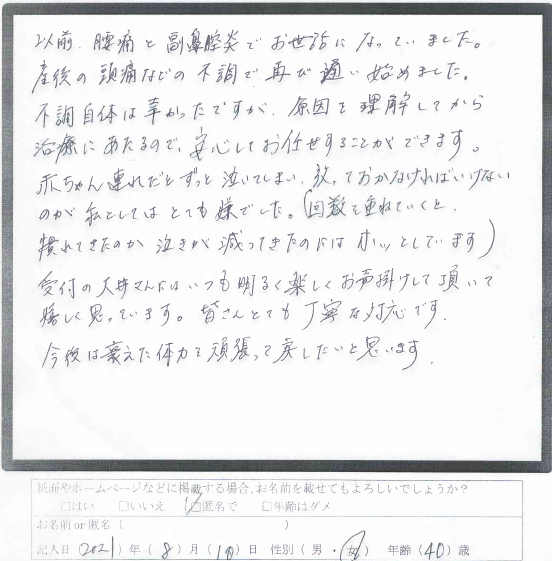 以前、腰痛と副鼻腔炎でお世話になっていました。
産後の頭痛などの不調で再び通い始めました。
不調自体は辛かったですが、原因を理解してから
治療にあたるので、安心してお任せすることができます。
赤ちゃん連れだとずっと泣いてしまい、放っておかなければいけない
のが私としてはとても嫌でした。(回数を重ねていくと、
慣れてきたのか泣きが減ってきたのにはホッとしています)
受付の人井さんにはいつも明るく楽しくお声掛けして頂いて
嬉しく思っています。皆さんとても丁寧な対応です。
今後は衰えた体力を頑張って戻したいと思います。
紙面やホームページなどに掲載する場合、お名前を載せてもよろしいでしょうか?
□はい □いいえ ☑匿名で □年齢はダメ
お名前 or 匿名 ( )
記入日 (2021) 年 (8) 月 (10) 日 性別 (男・女) 年齢 (40) 歳